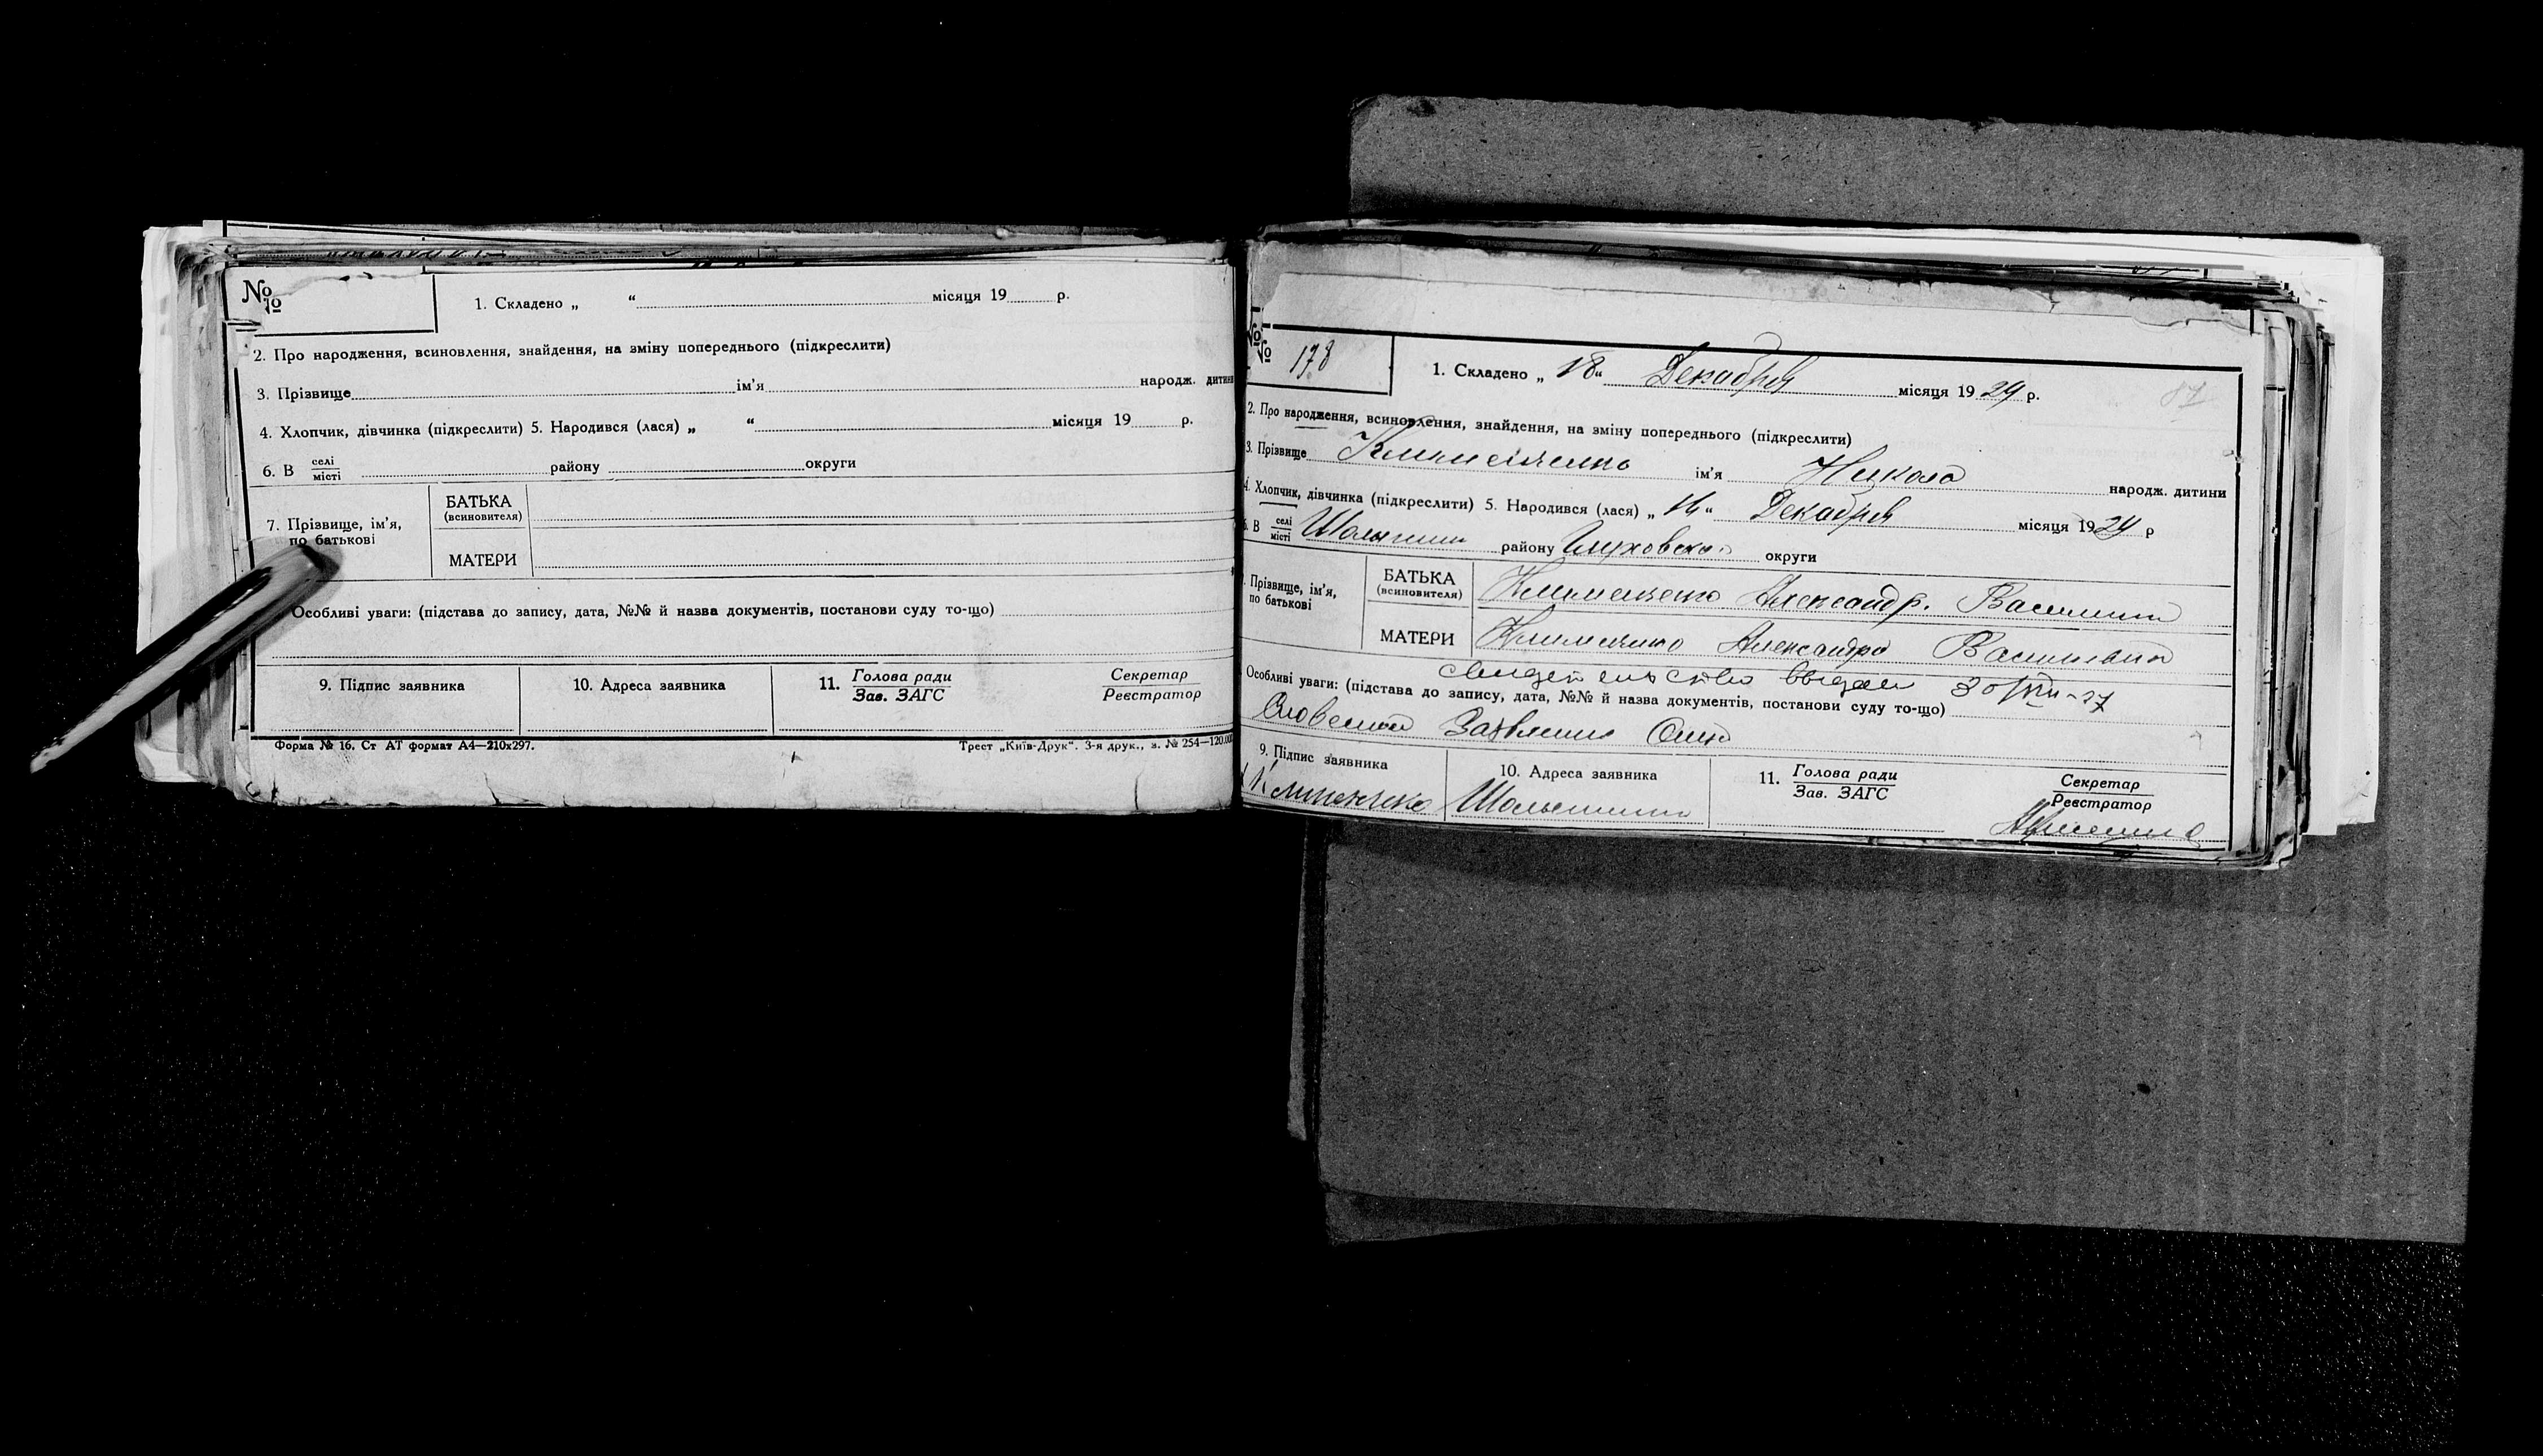 № №
1. Складено „ “ місяця 19 р.
2. Про народження, всиновлення, знайдення, на зміну попереднього (підкреслити)
3. Прізвище ім’я народж. дитини
4. Хлопчик, дівчинка (підкреслити) 5. Народився (лася) „ “ місяця 19 р.
6. В селі/місті району округи
7. Прізвище, ім’я, по батькові
БАТЬКА (всиновителя)
МАТЕРИ
Особливі уваги: (підстава до запису, дата, №№ й назва документів, постанови суду то-що)
9. Підпис заявника 10. Адреса заявника 11. Голова ради/Зав. ЗАГС Секретар/Реєстратор
Форма № 16. Ст АТ формат А4—210х297. Трест „Київ-Друк“. 3-я друк., з. № 254—120.000
№ № 178
1. Складено „18“ Декабря місяця 1929 р.
87
2. Про народження, всиновлення, знайдення, на зміну попереднього (підкреслити)
3. Прізвище Клименченко ім’я Никола народж. дитини
4. Хлопчик, дівчинка (підкреслити) 5. Народився (лася) „ “ Декабря місяця 1929 р
6. В селі/місті району Глуховской округи
Прізвище, ім’я, по батькові
БАТЬКА (всиновителя) Клименченко Александр.
МАТЕРИ Александра
свидетельство выдан 30/XII-37
Особливі уваги: (підстава до запису, дата, №№ й назва документів, постанови суду то-що)
Словесной Заявление Отца
9. Підпис заявника 10. Адреса заявника 11. Голова ради/Зав. ЗАГС Секретар/Реєстратор